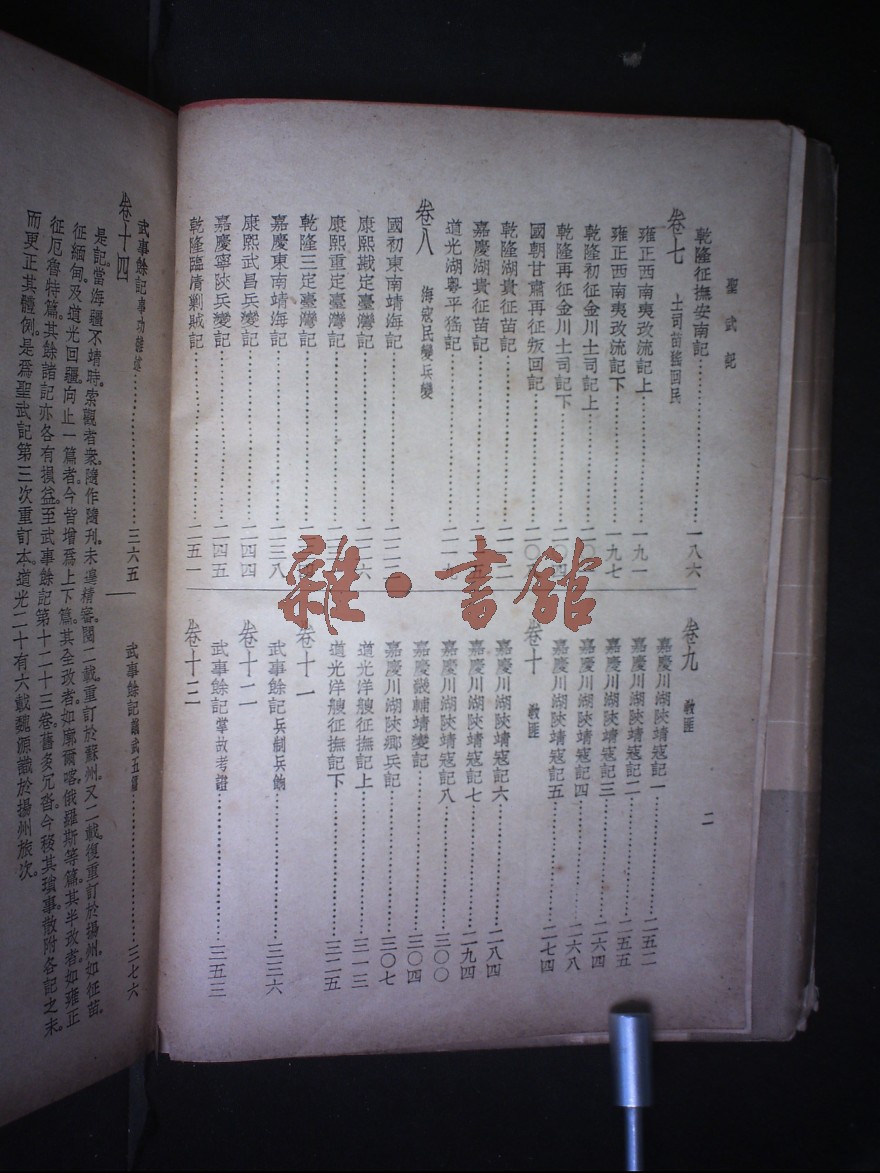 聖武記
二
乾隆征撫安南記……一八六
卷七　土司苗猺回民
雍正西南夷改流記上……一九一
雍正西南夷改流記下……一九七
乾隆初征金川土司記上……二〇
乾隆再征金川土司記下……二〇四
國朝甘肅再征叛回記……二〇
乾隆湖貴征苗記……二一二
嘉慶湖貴征苗記……二一
道光湖粵平猺記……二一
卷八　海寇民變兵變
國初東南靖海記……二二二
康熙戡定臺灣記……二二六
康熙重定臺灣記……二三
乾隆三定臺灣記……二三
嘉慶東南靖海記……二三八
康熙武昌兵變記……二四四
嘉慶寧陝兵變記……二四五
乾隆臨清剿賊記……二五一
卷九　教匪
嘉慶川湖陝靖寇記一……二五二
嘉慶川湖陝靖寇記二……二五五
嘉慶川湖陝靖寇記三……二六四
嘉慶川湖陝靖寇記四……二六八
嘉慶川湖陝靖寇記五……二七四
卷十　教匪
嘉慶川湖陝靖寇記六……二八四
嘉慶川湖陝靖寇記七……二九四
嘉慶川湖陝靖寇記八……三〇〇
嘉慶畿輔靖變記……三〇四
嘉慶川湖陝鄉兵記……三〇七
道光洋艘征撫記上……三一三
道光洋艘征撫記下……三二五
卷十一
武事餘記兵制兵餉……三三六
卷十二
武事餘記掌故考證……三五三
卷十三
武事餘記事功雜述……三六五
卷十四
武事餘記議武五篇……三七六
是記當海疆不靖時。索觀者衆。隨作隨刊。未遑精審。閱二載。重訂於蘇州。又二載。復重訂於揚州。如征苗。
征緬甸。及道光回疆。向止一篇者。今皆增爲上下篇。其全改者。如廓爾喀。俄羅斯等篇。其半改者。如雍正
征厄魯特篇。其餘諸記。亦各有損益。至武事餘記第十二十三卷。舊多冗沓。今移其瑣事。散附各記之末。
而更正其體例。是爲聖武記第三次重訂本。道光二十有六載。魏源識於揚州旅次。
雜·書館